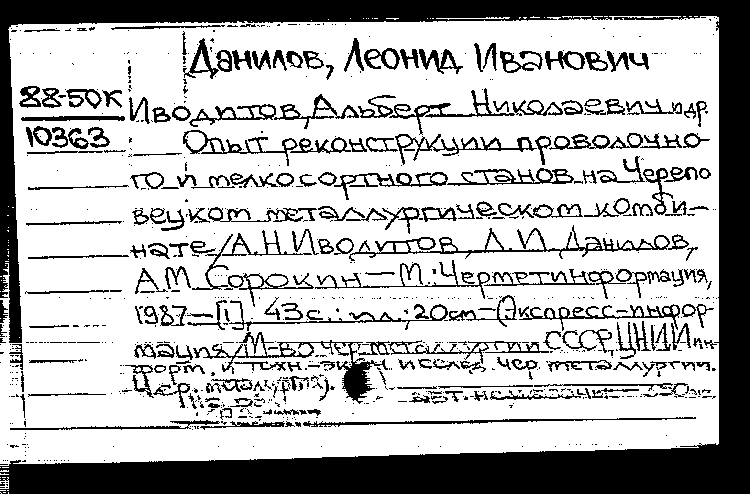 Данилов, Леонид Иванович
88-50К
10363
Иводитов, Альберт Николаевич и др.
Опыт реконструкции проволочно-
го и мелкосортного станов на Черепо
вецком металлургическом комби-
нате/А.Н.Иводитов, Л.И.Данилов,
А.М Сорокин — М.:Черметинформация,
1987.—[1], 43с.:ил.;20см—(Экспресс-инфор-
мация/М-во чер.металлургии СССР, ЦНИИ ин-
форм. и техн.-экон исслед. чер металлургии.
Чер. металлургия).